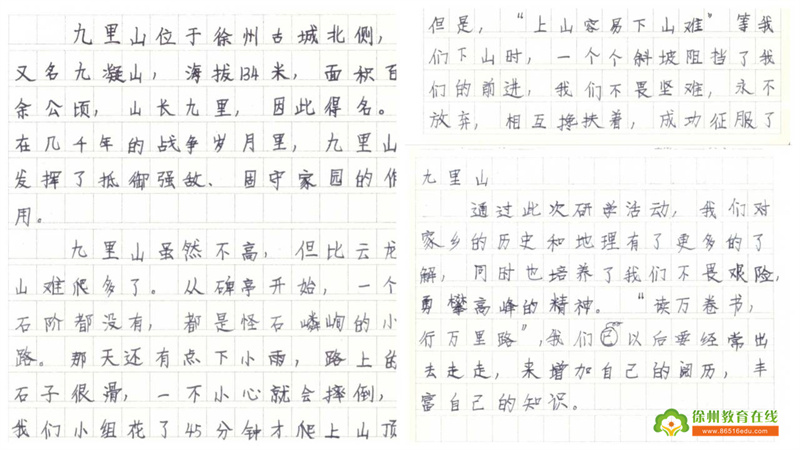 九里山位于徐州古城北侧，
又名九凝山，海拔134米，面积百
余公顷，山长九里，因此得名。
在几千年的战争岁月里，九里山
发挥了抵御强敌、固守家园的作
用。
九里山虽然不高，但比云龙
山难爬多了。从碑亭开始，一个
石阶都没有，都是怪石嶙峋的小
路。那天还有点下小雨，路上的
石子很滑，一不小心就会摔倒，
我们小组花了45分钟才爬上山顶
但是，“上山容易下山难”等我
们下山时，一个个斜坡阻挡了我
们的前进，我们不畏坚难，永不
放弃，相互搀扶着，成功征服了
九里山
通过此次研学活动，我们对
家乡的历史和地理有了更多的了
解，同时也培养了我们不畏艰险，
勇攀高峰的精神。“读万卷书，
行万里路”，我们以后要经常出
去走走，来增加自己的阅历，丰
富自己的知识。
徐州教育在线
www.86516edu.com